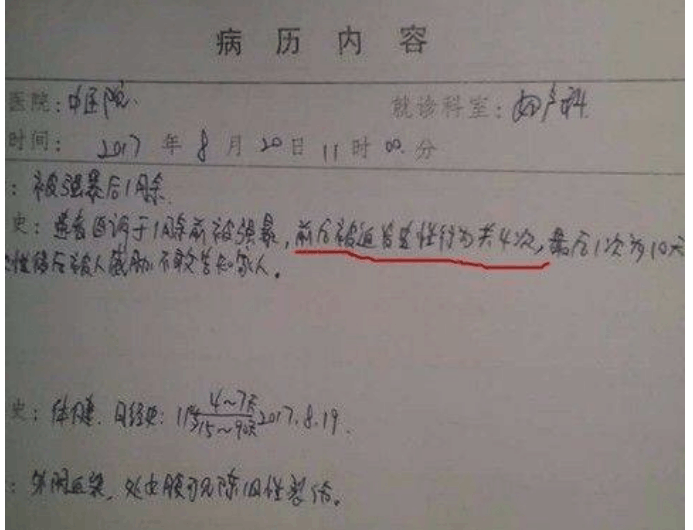 病历内容
医院：中医院. 就诊科室：妇产科
时间： 2017 年 8 月 20 日 11 时 00 分
：被强暴后1月余.
史：患者自诉于1月余前被强暴，前后被迫发生性行为共4次，最后1次为10天
性侵后被人威胁不敢告知家人。
史：体健. 月经史： 4~7天 15~90天 2017.8.19.
：外阴血染，处女膜可见陈旧性裂伤。